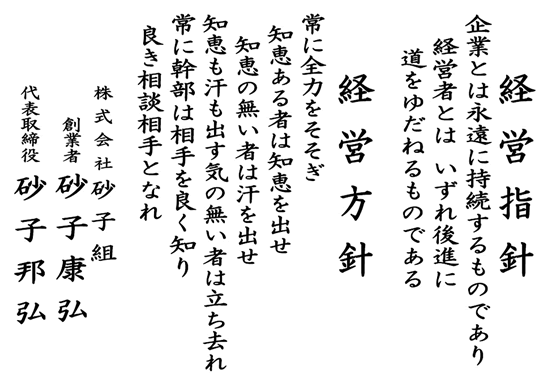 経営指針
企業とは永遠に持続するものであり
経営者とは いずれ後進に
道をゆだねるものである
経営方針
常に全力をそそぎ
知恵ある者は知恵を出せ
知恵の無い者は汗を出せ
知恵も汗も出す気の無い者は立ち去れ
常に幹部は相手を良く知り
良き相談相手となれ
株式会社 砂子組
創業者 砂子康弘
代表取締役 砂子邦弘